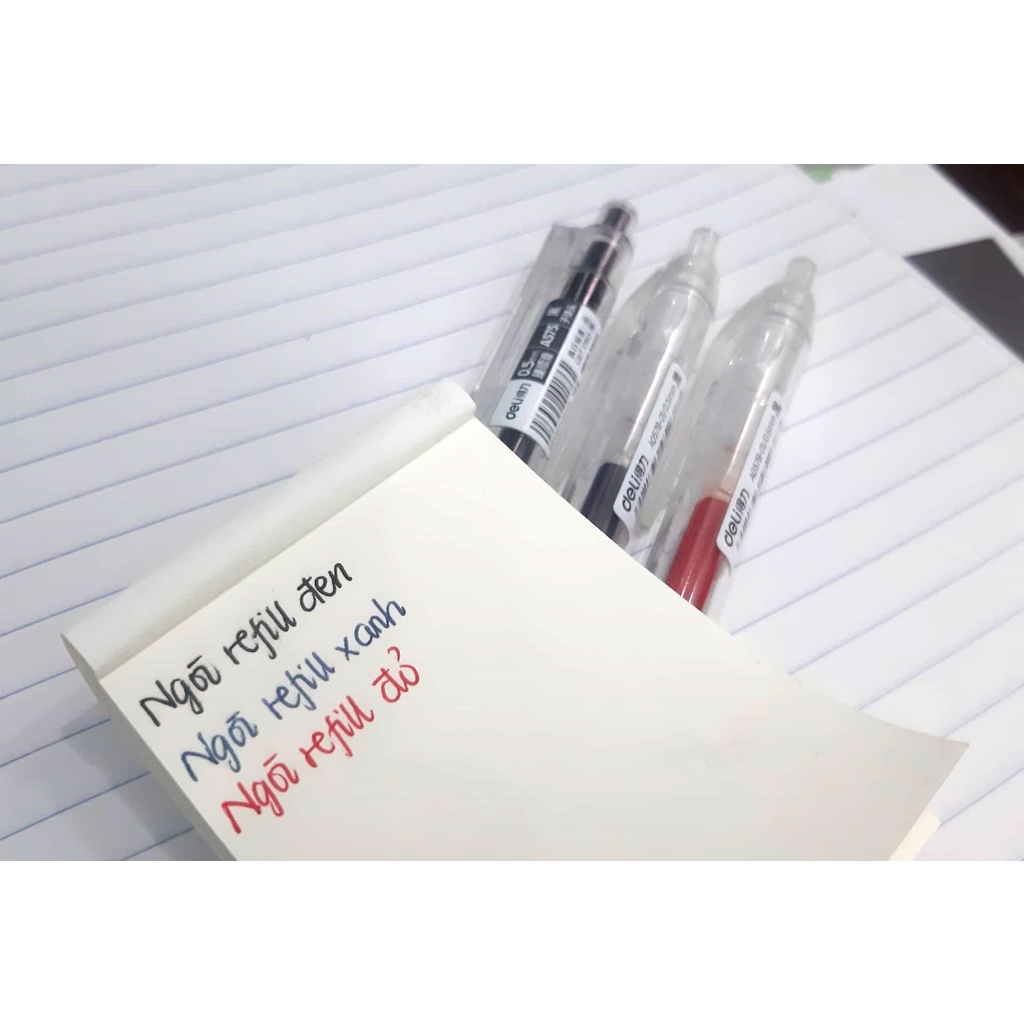 Ngòi refill đen
Ngòi refill xanh
Ngòi refill đỏ
deli得力
0.5mm
A575
deli得力
deli得力